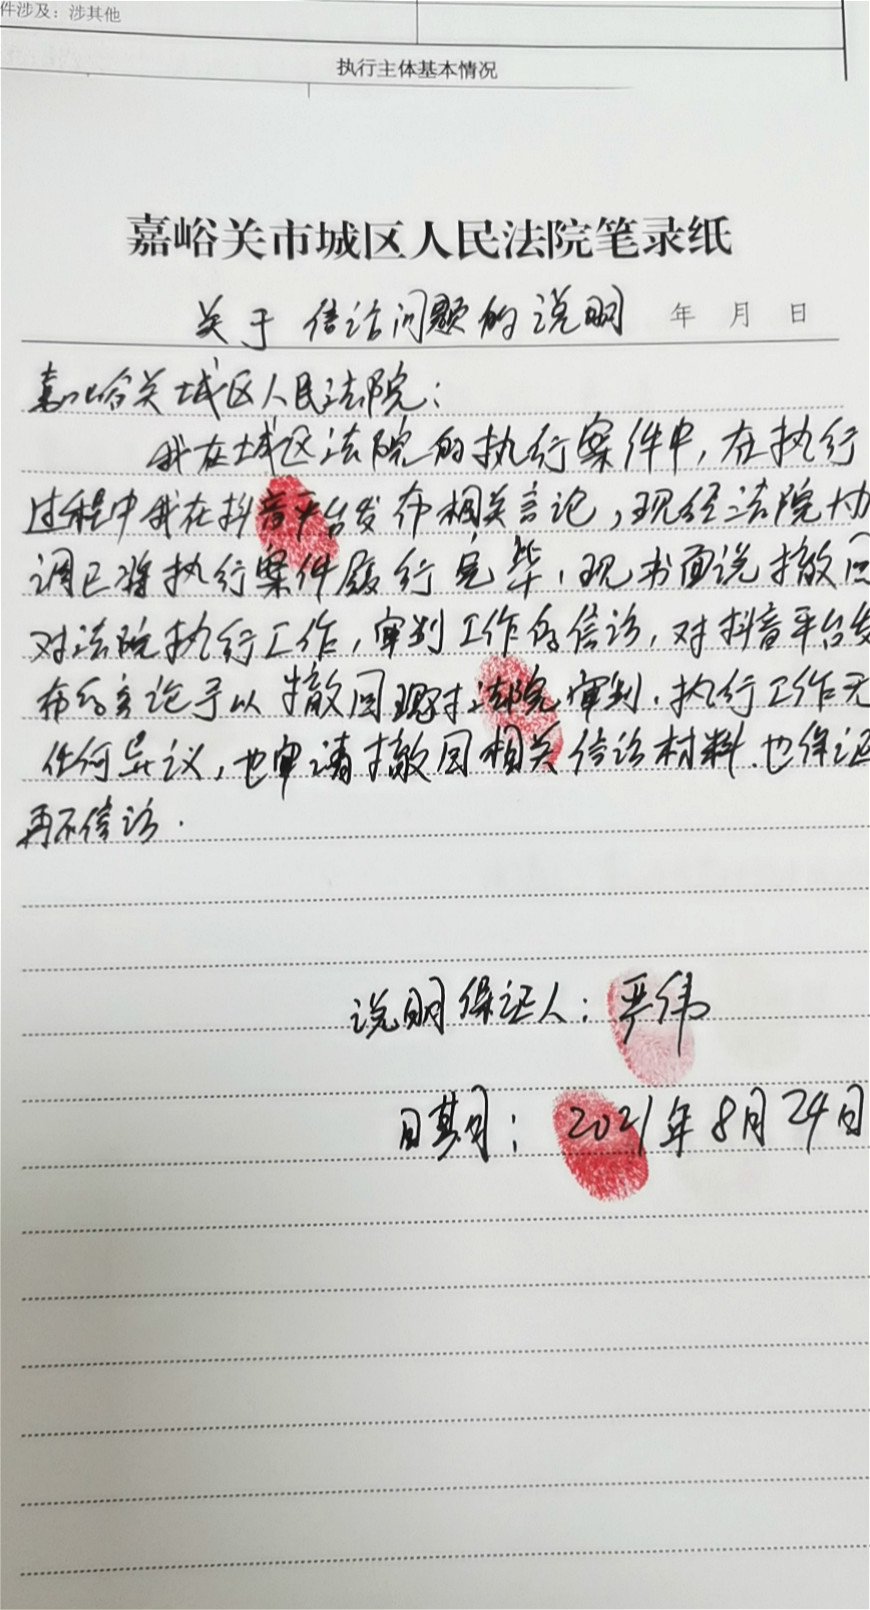 件涉及：涉其他
执行主体基本情况
嘉峪关市城区人民法院笔录纸
关于信访问题的说明 年 月 日
嘉峪关城区人民法院：
我在城区法院的执行案件中，在执行
过程中我在抖音平台发布相关言论，现经法院协
调已将执行案件履行完毕，现书面说撤回
对法院执行工作，审判工作的信访，对抖音平台发
布的言论予以撤回现对法院审判、执行工作无
任何异议，也申请撤回相关信访材料.也保证
再不信访.
说明保证人：严伟
日期：2021年8月24日